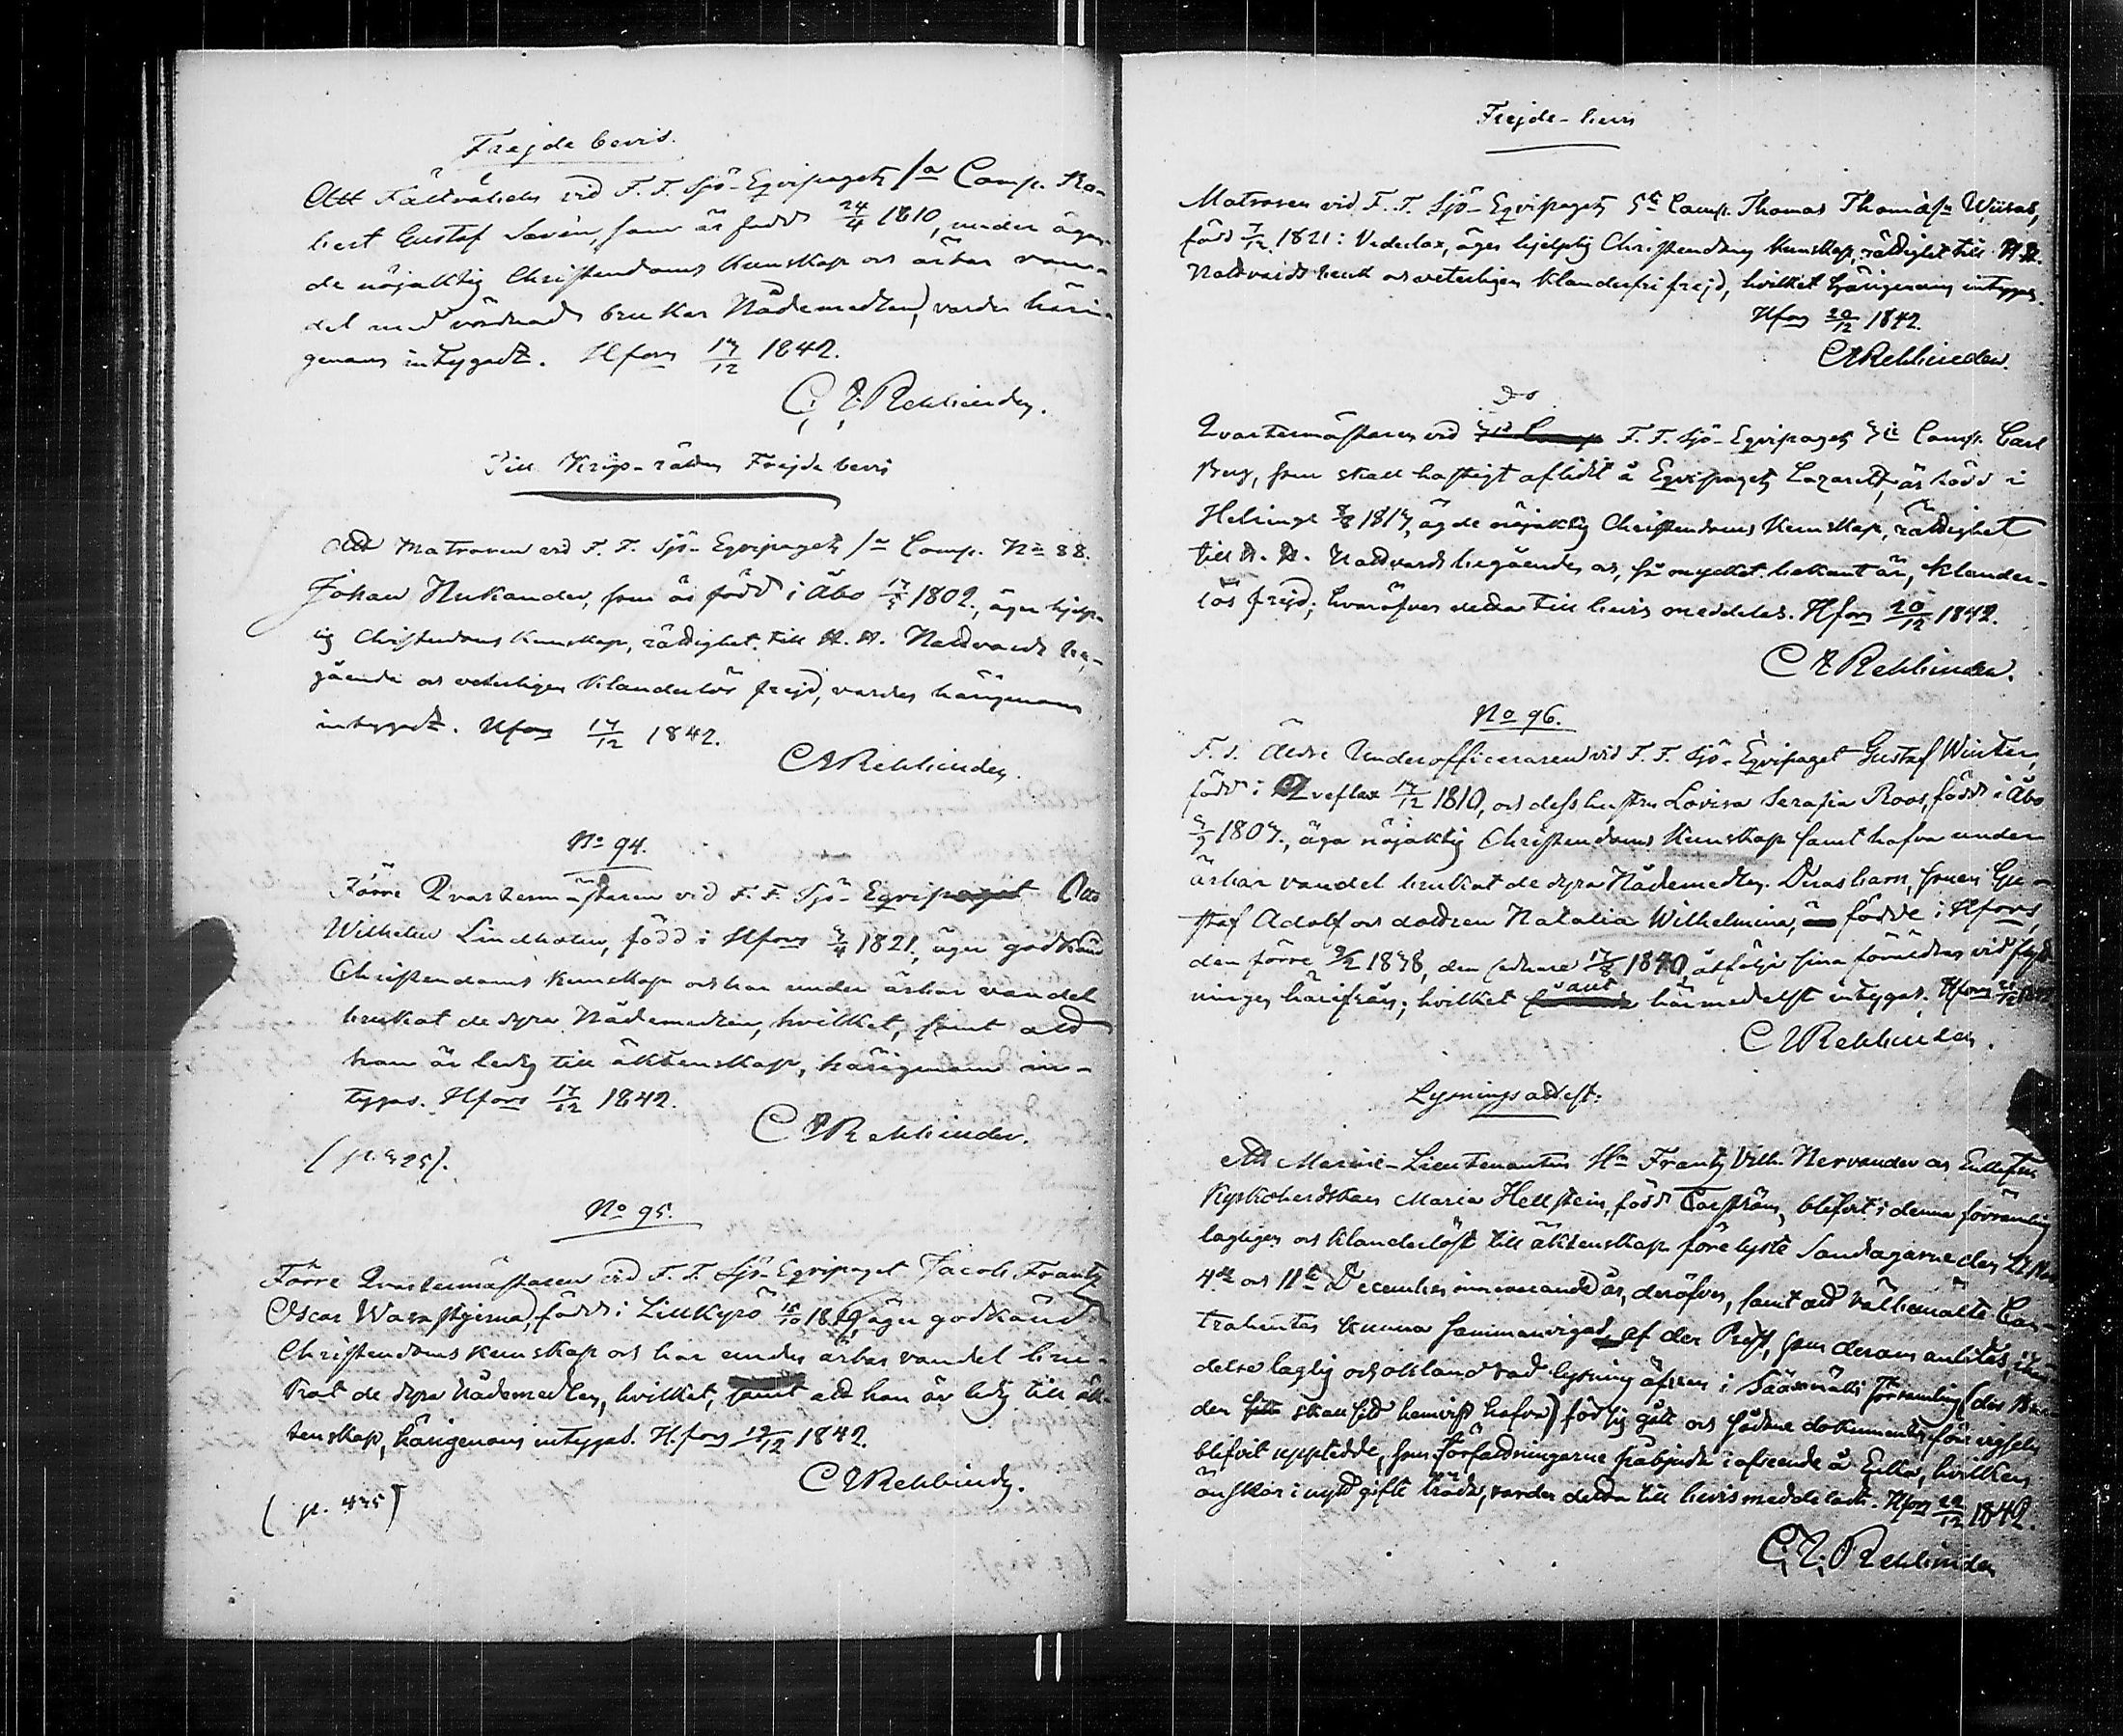 Frejde bevis.
Att Fältväbeln vid F. F. Sjö-Eqvipagets 1a Comp. Ro-
bert Gustaf Savén, som är född 24/4 1810, under ägan-
de nöjaktig Christendoms Kunskap och ärbar van-
del med vördnad brukar Nådemedlen, varder häri-
genom intygadt. Hfors 17/12 1842.
C. A. Rehbinder.
Till Krigs-rätten Frejde bevis
Att Matrosen vid F. F. Sjö-Eqvipagets 1a Comp. No 88.
Johan Nukander, som är född i Åbo 1802, äger hjelp-
lig Christendoms Kunskap, rättighet till H. H. Nattvards be-
gående och veterligen klanderlös frejd, varder härigenom
intygadt. Hfors 17/12 1842.
C A Rehbinder.
No 94.
Förre Qvartermästaren vid F. F. Sjö-Eqvipaget Otto
Wilhelm Lindholm, född i Hfors 1821, äger godkänd
Christendoms kunskap och har under ärbar vandel
brukat de dyra Nådemedlen, hvilket, samt att
han är ledig till äktenskap, härigenom in-
tygas. Hfors 17/12 1842.
C A Rehbinder.
(p. 425).
No 95.
Förre Qvartermästaren vid F. F. Sjö-Eqvipaget Jacob Frantz
Oscar Warnstjerna, född i Lillkyrö äger godkänd
Christendoms kunskap och har under ärbar vandel bru-
kat de dyra Nådemedlen, hvilket, samt att han är ledig till äk-
tenskap, härigenom intygas. H.fors 19/12 1842.
C A Rehbinder.
(p. 435)
Frejde-bevis
Matrosen vid F. F. Sjö-Eqvipagets 5te Comp. Thomas Thomasson
född 7/12 1821 i Vederlax, äger hjelplig Christendoms kunskap, rättighet till H.H.
Nattvards bruk och veterligen klanderfri frejd, hvilket härigenom intygas.
Hfors 20/12 1842.
C A Rehbinder.
Do
Qvartermästaren vid F. F. Sjö-Eqvipagets Comp. Carl
Berg, som skall hastigt aflidit å Eqvipagets Lazarett, är född i
Helsinge 1817, ägde nöjaktig Christendoms Kunskap, rättighet
till H. H. Nattvards begående och, så mycket bekant är, klander-
lös frejd; hvaröfver detta till bevis meddelas. Hfors 20/12 1842.
C A Rehbinder.
No 96.
F. d. Äldre Underofficeraren vid F. F. Sjö-Eqvipaget Gustaf Winter,
född i Qveflax 17/12 1810, och dess hustru Lovisa Serafia Roos, född i Åbo
1807, äga nöjaktig Christendoms Kunskap samt hafva under
ärbar vandel brukat de dyra Nådemedlen. Deras barn, sonen Gu-
staf Adolf och dottren Natalia Wilhelmina, födde i Hfors,
den förre 1838, den sednare 17/8 1840, åtfölja sina föräldrar vid flytt-
ningen härifrån; hvilket härmedelst intygas. Hfors
C A Rehbinder.
Lysningsattest:
Att Marine-Lieutenanten Hr Frantz Vilh. Nervander och Enkefru
Kyrkoherdskan Maria Hellstein, född blifvit i denna församling
lagligen och klanderlöst till äktenskap förelyste Söndagarne den
4de och 11te December innevarande år, deröfver, samt att välbemälte Con-
trahenter kunna sammanvigas af den Prest, som derom anlitas,
delse laglig och oklandrad lysning äfven i Sääxmäki församling (der
den skall sitt hemvist hafva) för sig gått och sådane dokumenter före vigseln
blifvit uppteedde, som Författningarne påbjuda i afseende å Enka, hvilken
önskar i nytt gifte träda, varder detta till bevis meddeladt. Hfors 22/12 1842.
C. A. Rehbinder